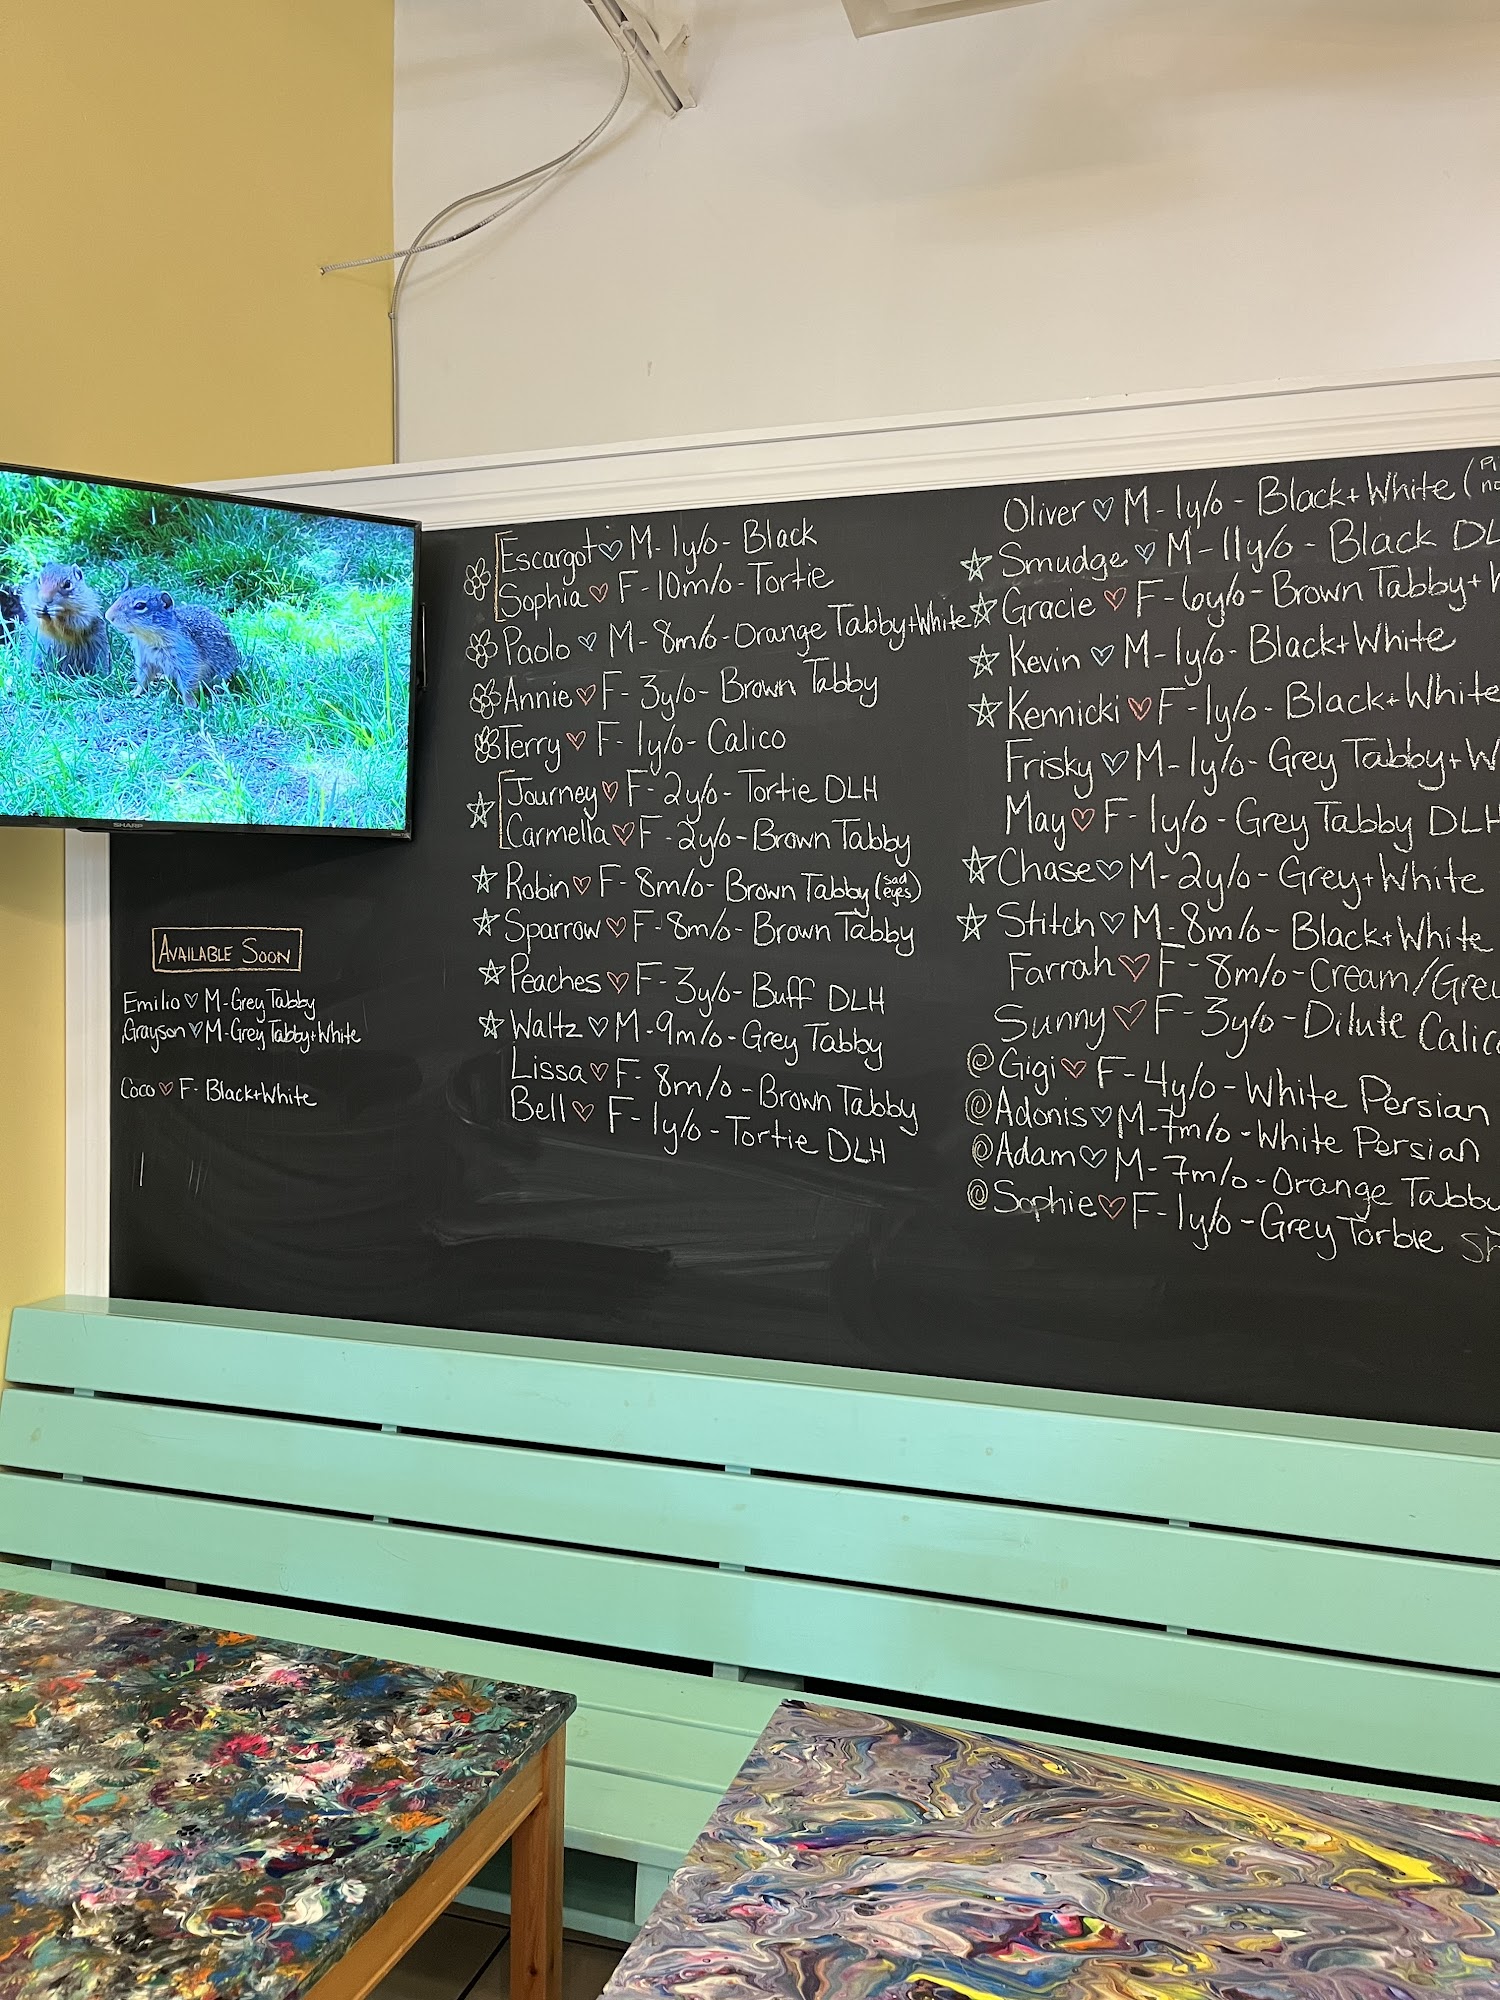 SHARP
AVAILABLE SOON
Emilio ♡ M-Grey Tabby
Grayson ♡ M-Grey Tabby+White
Coco ♡ F- Black+White
Escargot ♡ M- 1y/o- Black
Sophia ♡ F- 10m/o- Tortie
Paolo ♡ M- 8m/o- Orange Tabby+White
Annie ♡ F- 3y/o- Brown Tabby
Terry ♡ F- 1y/o- Calico
Journey ♡ F- 2y/o- Tortie DLH
Carmella ♡ F- 2y/o- Brown Tabby
Robin ♡ F- 8m/o- Brown Tabby (sad eyes)
Sparrow ♡ F- 8m/o- Brown Tabby
Peaches ♡ F- 3y/o- Buff DLH
Waltz ♡ M- 9m/o- Grey Tabby
Lissa ♡ F- 8m/o- Brown Tabby
Bell ♡ F- 1y/o- Tortie DLH
Oliver ♡ M- 1y/o- Black+White (
Smudge ♡ M- 11y/o- Black DL
Gracie ♡ F- 6y/o- Brown Tabby+
Kevin ♡ M- 1y/o- Black+White
Kennicki ♡ F- 1y/o- Black+White
Frisky ♡ M- 1y/o- Grey Tabby+W
May ♡ F- 1y/o- Grey Tabby DLH
Chase ♡ M- 2y/o- Grey+White
Stitch ♡ M- 8m/o- Black+White
Farrah ♡ F- 8m/o- Cream/Grey
Sunny ♡ F- 3y/o- Dilute Calico
@ Gigi ♡ F- 4y/o- White Persian
@ Adonis ♡ M- 7m/o- White Persian
@ Adam ♡ M- 7m/o- Orange Tabby
@ Sophie ♡ F- 1y/o- Grey Torbie